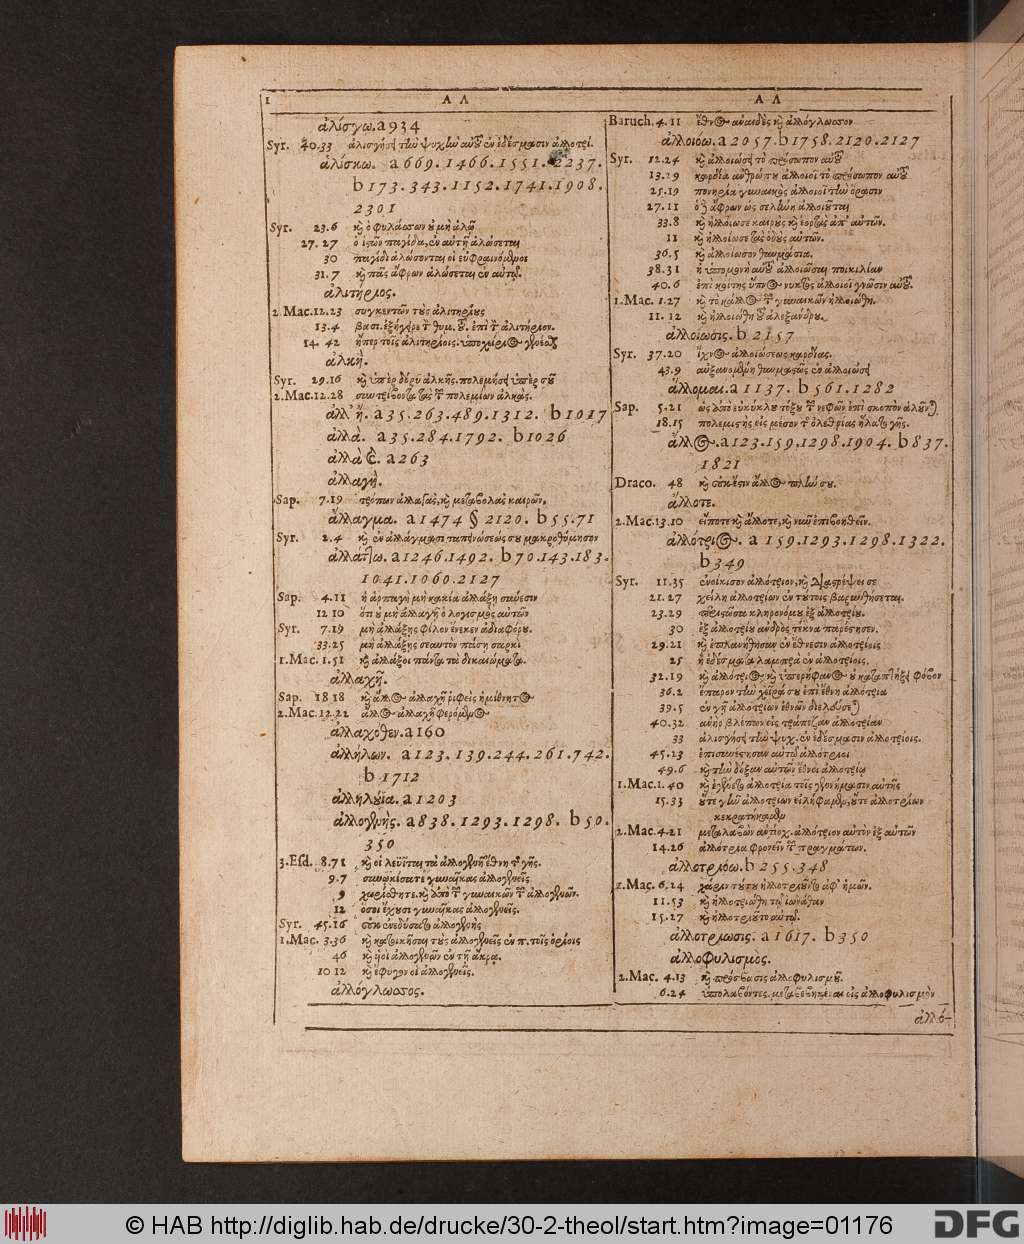 1 Α Λ Α Λ
ἀλίσγω. a 934
Syr. 40.33 ἀλισγήσει τὴν ψυχὴν αὐτοῦ ἐν ἐδέσμασιν ἀλλοτρί.
ἁλίσκω. a 669. 1466. 1551. 2237.
b 173. 343. 1152. 1741. 1908.
2301
Syr. 23.6 καὶ ὁ φυλάσσων οὐ μὴ ἁλῷ
27.27 ὁ ἱστῶν παγίδα, ἐν αὐτῇ ἁλώσεται
30 παγίδι ἁλώσονται οἱ εὐφραινόμενοι
31.7 καὶ πᾶς ἄφρων ἁλώσεται ἐν αὐτῷ.
ἀλιτήριος.
2. Mac. 12.23 συγκεντῶν τοὺς ἀλιτηρίους
13.4 βασι. ἐξήγειρε τὸν θυμ. τοῦ. ἐπὶ τὸν ἀλιτήριον.
14.42 ἤπερ τοῖς ἀλιτηρίοις. ὑποχείριος γενέσθαι
ἀλκή.
Syr. 29.16 καὶ ὑπὲρ δόρυ ἀλκῆς. πολεμήσει ὑπὲρ σοῦ
2. Mac. 12.28 συντρίβοντα τὰς τῶν πολεμίων ἀλκάς.
ἀλλ' ἤ. a 35. 263. 489. 1312. b 1017
ἀλλά. a 35. 284. 1792. b 1026
ἀλλὰ καί. a 263
ἀλλαγή.
Sap. 7.19 τρόπων ἀλλαγὰς, καὶ μεταβολὰς καιρῶν.
ἄλλαγμα. a 1474 § 2120. b 55. 71
Syr. 2.4 καὶ ἐν ἀλλάγμασι ταπεινώσεώς σου μακροθύμησον
ἀλλάττω. a 1246. 1492. b 70. 143. 183.
1041. 1060. 2127
Sap. 4.11 ἡ ἁρπαγὴ μὴ κακία ἀλλάξῃ σύνεσιν
12 10 ὅτι οὐ μὴ ἀλλαγῇ ὁ λογισμὸς αὐτῶν
Syr. 7.19 μὴ ἀλλάξῃς φίλον ἕνεκεν ἀδιαφόρου.
33.25 μὴ ἀλλάξῃς σεαυτὸν πάσῃ σαρκὶ
1. Mac. 1.51 καὶ ἀλλάξαι πάντα τὰ δικαιώματα.
ἀλλαχῆ.
Sap. 18 18 καὶ ἄλλος ἀλλαχῇ ῥιφεὶς ἡμίθνητος
2. Mac. 12.22 ἄλλος ἀλλαχῇ φερόμενος
ἀλλαχόθεν. a 160
ἀλλήλων. a 123. 139. 244. 261. 742.
b 1712
ἀλληλούϊα. a 1203
ἀλλογενής. a 838. 1293. 1298. b 50.
350
3. Esd. 8.71 καὶ οἱ λευῖται τὰ ἀλλογενῆ ἔθνη τῆς γῆς.
9.7 συνῳκίσατε γυναῖκας ἀλλογενεῖς
9 χωρίσθητε. καὶ ἀπὸ τῶν γυναικῶν τῶν ἀλλογενῶν.
12 ὅσοι ἔχουσι γυναῖκας ἀλλογενεῖς.
Syr. 45.16 οὐκ ἐνεδύσατο ἀλλογενὴς
1. Mac. 3.36 καὶ κατοικῆσαι τοὺς ἀλλογενεῖς ἐν π. τοῖς ὁρίοις
46 καὶ υἱοὶ ἀλλογενῶν ἐν τῇ ἄκρᾳ.
10 12 καὶ ἔφυγον οἱ ἀλλογενεῖς.
ἀλλόγλωσσος.
Baruch. 4.11 ἔθνος ἀναιδὲς καὶ ἀλλόγλωσσον
ἀλλοιόω. a 2057. b 1758. 2120. 2127
Syr. 12.24 καὶ ἀλλοιώσει τὸ πρόσωπον αὐτοῦ
13.29 καρδία ἀνθρώπου ἀλλοιοῖ τὸ πρόσωπον αὐτοῦ
25.19 πονηρία γυναικὸς ἀλλοιοῖ τὴν ὅρασιν
27.11 ὁ δὲ ἄφρων ὡς σελήνη ἀλλοιοῦται
33.8 καὶ ἠλλοίωσε καιροὺς καὶ ἑορτὰς ἀπ' αὐτῶν.
11 καὶ ἠλλοίωσε τὰς ὁδοὺς αὐτῶν.
36.5 καὶ ἀλλοίωσον θαυμάσια.
38.31 ἡ ὑπομονὴ αὐτοῦ ἀλλοιῶσαι ποικιλίαν
40.6 ἐπὶ κοίτης ὕπνος νυκτὸς ἀλλοιοῖ γνῶσιν αὐτοῦ.
1. Mac. 1.27 καὶ τὸ κάλλος τῶν γυναικῶν ἠλλοιώθη.
11.12 καὶ ἠλλοιώθη τοῦ ἀλεξάνδρου.
ἀλλοίωσις. b 2157
Syr. 37.20 ἴχνος ἀλλοιώσεως καρδίας.
43.9 αὐξανομένη θαυμαστῶς ἐν ἀλλοιώσει
ἅλλομαι. a 1137. b 561. 1282
Sap. 5.21 ὡς ἀπὸ εὐκύκλου τόξου τῶν νεφῶν ἐπὶ σκοπὸν ἁλοῦνται
18.15 πολεμιστὴς εἰς μέσον τῆς ὀλεθρίας ἥλατο γῆς.
ἄλλος. a 123. 159. 1298. 1904. b 837.
1821
Draco. 48 καὶ οὐκ ἔστιν ἄλλος πλὴν σου.
ἄλλοτε.
2. Mac. 13.10 εἴποτε καὶ ἄλλοτε, καὶ νῦν ἐπιβοηθεῖν.
ἀλλότριος. a 159. 1293. 1298. 1322.
b 349
Syr. 11.35 ἐνοίκισον ἀλλότριον, καὶ διαστρέψει σε
21.27 χείλη ἀλλοτρίων ἐν τούτοις βαρυνθήσεται.
23.29 παριστῶσα κληρονόμον ἐξ ἀλλοτρίου.
30 ἐξ ἀλλοτρίου ἀνδρὸς τέκνα παρέστησεν.
29.21 καὶ ἐπλανήθησαν ἐν ἔθνεσιν ἀλλοτρίοις
25 ἢ ἐδέσματα λαμπρὰ ἐν ἀλλοτρίοις.
32.19 καὶ ἀλλότριος καὶ ὑπερήφανος οὐ καταπτήξει φόβον
36.2 ἔπαρον τὴν χεῖρά σου ἐπὶ ἔθνη ἀλλότρια
39.5 ἐν γῇ ἀλλοτρίων ἐθνῶν διελεύσεται
40.32 ἀνὴρ βλέπων εἰς τράπεζαν ἀλλοτρίαν
33 ἀλισγήσει τὴν ψυχ. ἐν ἐδέσμασιν ἀλλοτρίοις.
45.23 ἐπισυνέστησαν αὐτῷ ἀλλότριοι
49.6 καὶ τὴν δόξαν αὐτῶν ἔθνει ἀλλοτρίῳ
1. Mac. 1.40 καὶ ἐγένετο ἀλλοτρία τοῖς γεννήμασιν αὐτῆς
15.33 οὔτε γῆν ἀλλοτρίων εἰλήφαμεν, οὔτε ἀλλοτρίων
κεκρατήκαμεν
2. Mac. 4.21 μεταλαβὼν ἀντιοχ. ἀλλότριον αὐτὸν ἐξ αὐτῶν
14.26 ἀλλότρια φρονεῖν τῶν πραγμάτων.
ἀλλοτριόω. b 255. 348
1. Mac. 6.24 χάριν τούτου ἠλλοτριοῦντο ἀφ' ἡμῶν.
11.53 καὶ ἠλλοτριώθη τῷ ἰωνάθαν
15.27 καὶ ἠλλοτριοῦτο αὐτῷ.
ἀλλοτρίωσις. a 1617. b 350
ἀλλοφυλισμός.
2. Mac. 4.13 καὶ πρόσβασις ἀλλοφυλισμοῦ.
6.24 ὑπολαβόντες. μεταβεβηκέναι εἰς ἀλλοφυλισμὸν
ἀλλό-
© HAB http://diglib.hab.de/drucke/30-2-theol/start.htm?image=01176
DFG